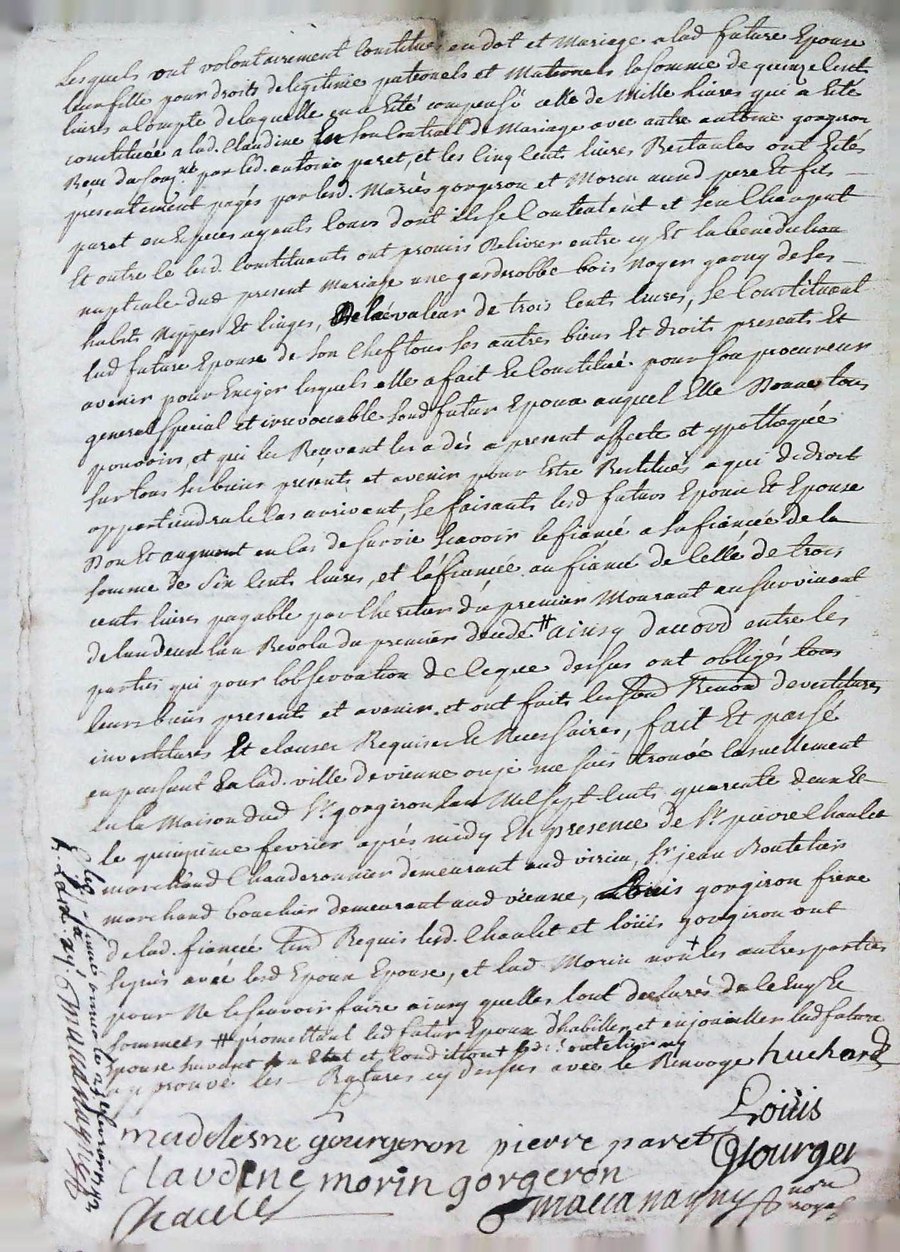 Lesquels ont volontairement constitués en dot et Mariage a lad future Epouse
leur fille pour droits de legitime paternels et Maternels la somme de quinze cents
livres a compte de laquelle en a Eté compensé celle de Mille livres qui a Eté
constituée a lad. Claudine En son Contract de Mariage avec autre anthoine gorgeron
par led. antoine paret, et les Cinq Cent livres Restantes ont Eté
presentement payés par lesd. Mariés gorgeron et Morin auxd pere Et fils
paret en Especes ayants cours dont ils se Contentent et s'en Chargent
Et outre ce lesd. Constituants ont promis delivrer entre cy Et la benediction
nuptiale dud present Mariage une garderobbe bois Noyer garny de ses
habits Nippes Et linges, De la valeur de trois Cents livres, se Constituant
lad future Epouse de son Chef tous ses autres biens Et droits presents Et
avenir pour Exiger lesquels elle a fait Et Constitué pour son procureur
general special et irrevocable sond futur Epoux auquel Elle Donne tous
pouvoirs, et qui les Recevant les a dès a present affecté et ypothequé
sur tous ses biens présents et avenir pour Estre Restitués a qui de droit
appartiendra le Cas arrivant, se faisants lesd futurs Epoux Et Epouse
Don Et augment en Cas de survie scavoir le fiancé a sa fiancée de la
somme de Six Cents livres, et la fiancée au fiancé de Celle de trois
cents livres payable par l'heritier du premier Mourant au survivant
du premier decedé # ainsy daccord entre les
parties qui pour l'observation de ce que dessus ont obligés tous
leurs biens presents et avenir, et ont faits
investitures Et clauses Requises Et Necessaires, fait Et passé
en passant En lad. ville de vienne ou je me suis trouvé Casuellement
En la Maison dud Sr. gorgiron lan Mil sept Cents quarente deux Et
le quinzieme fevrier après midy En presence de Sr pierre Chaulet
marchand Chauderonnier demeurant aud virieu, Sr. jean Boutelier
marchand boucher demeurant aud vienne, Louis gorgiron frere
de lad. fiancée Requis lesd. Chaulet et loüis gorgiron ont
signés avec lesd Epoux Epouse, et lad Morin non + les autres parties
pour Ne le scavoir faire ainsy quelles l'ont declarés de ce Enquis Et
sommées # promettant led futur Epoux d'habiller et enjoailler lad future
Epouse suivant sa Etat et Condition +
approuvé les Ratures cy dessus avec le Renvoye huchard
Loüis
madelesne gourgeron pierre paret Gourger
claudine morin gorgeron
Chaulet
Maccanagny nore
royal